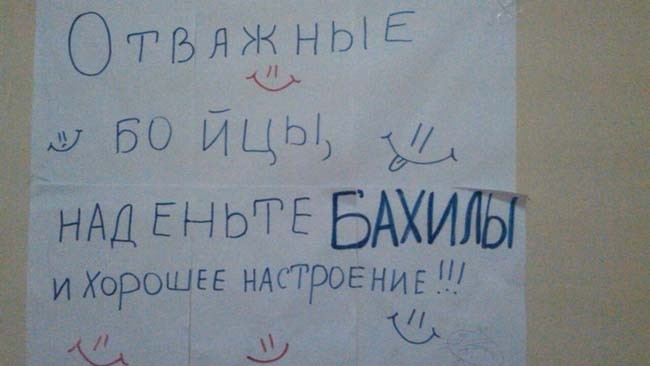 Отважные
бойцы,
наденьте БАХИЛЫ
и хорошее настроение!!!